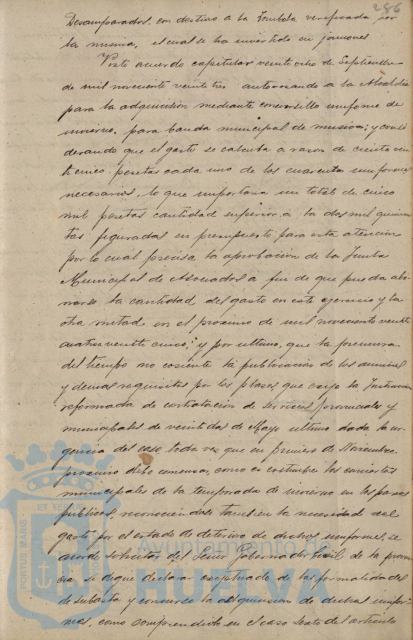 286
Desamparados, con destino a la Tombola verificada por
la misma, el cual se ha invertido en jamones.
Visto acuerdo capitular veintiocho de Septiembre
de mil novecientos veintitres autorizando a la Alcaldia
para la adquisición mediante concursillo uniforme de
invierno, para banda municipal de musica; y consi
derando que el gasto se calcula a razon de ciento vein
ticinco pesetas cada uno de los cuarenta uniformes
necesarios, lo que importaria un total de cinco
mil pesetas cantidad superior a la dos mil quinien
tas figuradas en presupuesto para esta atencion
por lo cual precisa la aprobacion de la Junta
Municipal de Asociados a fin de que pueda abo
narse la cantidad del gasto en este ejercicio y la
otra mitad en el proximo de mil novecientos veinti
cuatro veinticinco; y por ultimo, que la premura
del tiempo no consiente la publicacion de los anuncios
y demas requisitos por los plazos que exige la Instruccion
reformada de contratacion de servicios provinciales y
municipales de veintidos de Mayo ultimo dada la ur
gencia del caso toda vez que en primero de Noviembre
proximo debe comenzar, como es costumbre los conciertos
municipales de la temporada de invierno en los paseos
publicos, reconociendose la necesidad del
gasto por el estado de deterioro de dichos uniformes, se
acordo solicitar del Señor Gobernador Civil de la provin
cia se digne declarar exceptuada de las formalidades
de subasta y concurso la adquisicion de dichos unifor
mes, como comprendido en el caso sexto del articulo
PORTUS MARIS
Ayuntamiento de
HUELVA